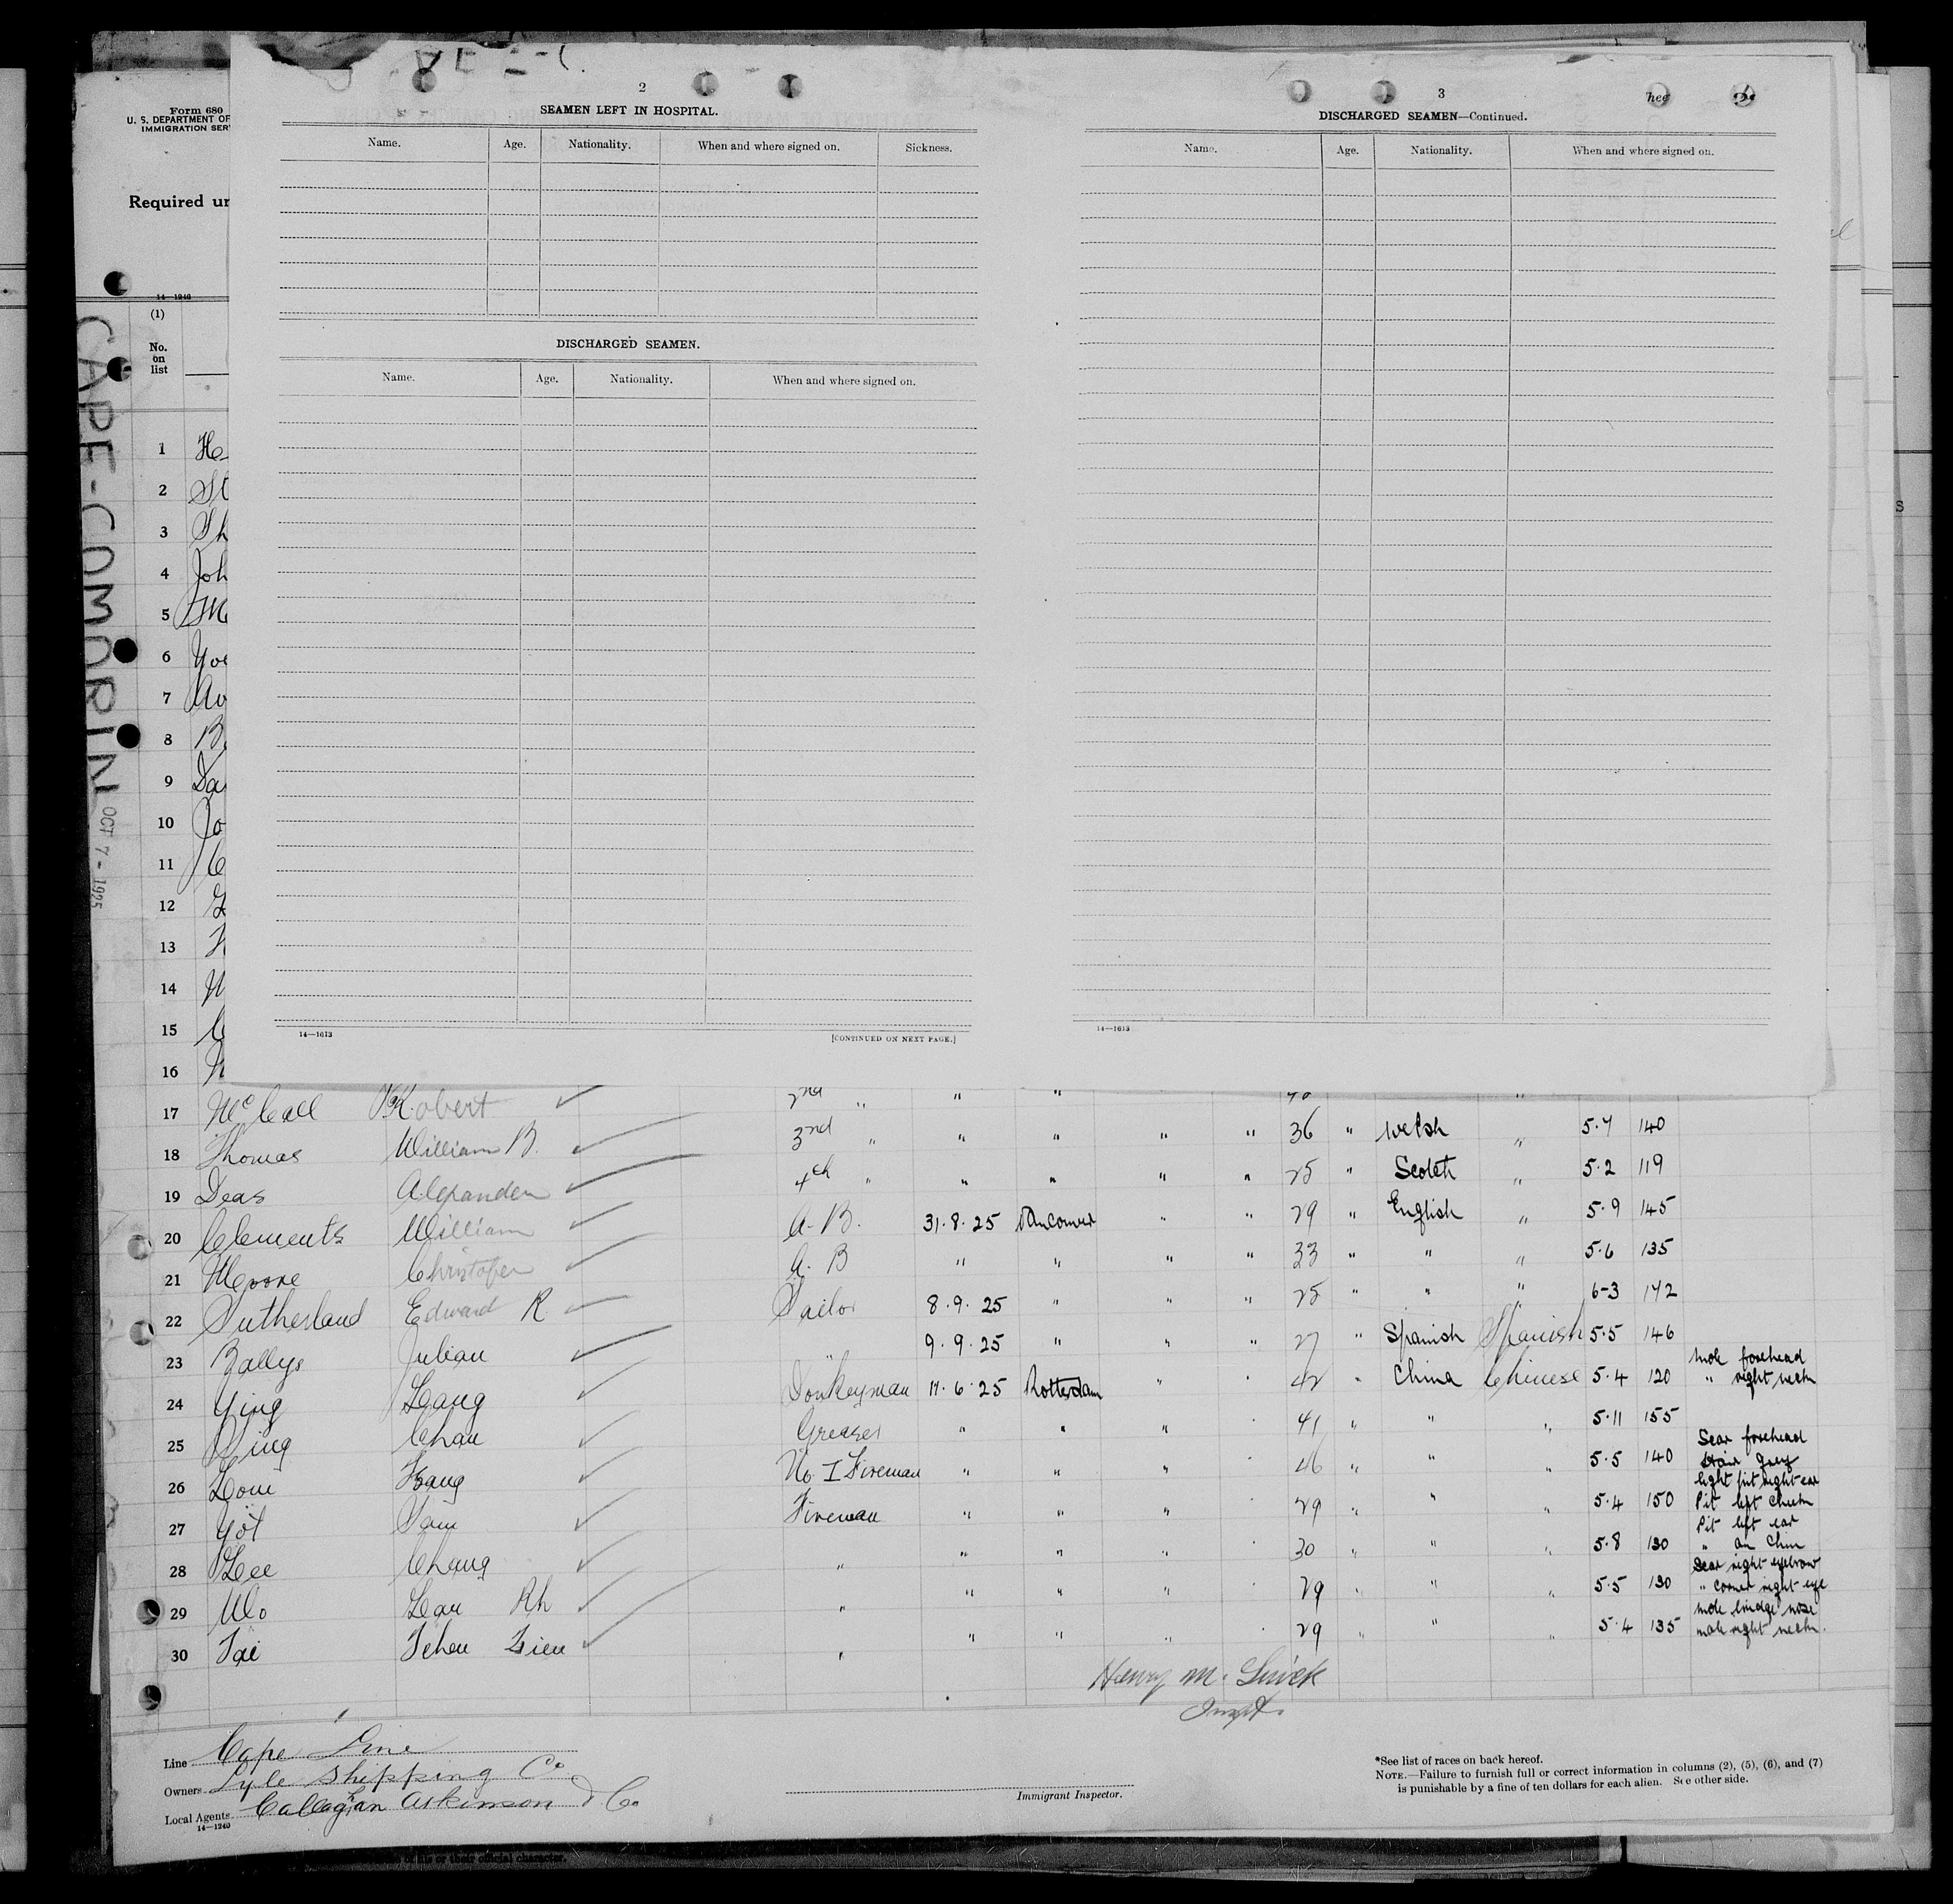 2
SEAMEN LEFT IN HOSPITAL.
Name. Age. Nationality. When and where signed on. Sickness.
DISCHARGED SEAMEN.
Name. Age. Nationality. When and where signed on.
14—1613 [CONTINUED ON NEXT PAGE.]
3
DISCHARGED SEAMEN—Continued.
Name. Age. Nationality. When and where signed on.
14—1613
hee
Form 680
U. S. DEPARTMENT OF
IMMIGRATION SER
Required un
14—1240
(1)
No.
on
list
CAPE-COMORIN OCT 7-1925
1 He
2 St
3 Th
4 Joh
5 Mc
6 You
7
8 B
9 Da
10 Jo
11
12
13
14
15
16
17 McCall Robert 2nd " " "
18 Thomas William B. 3rd " " " " " 36 " Welsh " 5.7 140
19 Deas Alexander 4th " " " " " 25 " Scotch " 5.2 119
20 Clements William A.B. 31.8.25 Vancouver " " 29 " English " 5.9 145
21 Moore Christopher A.B " " " " 33 " " " 5.6 135
22 Sutherland Edward R. Sailor 8.9.25 " " " 25 " " " 6-3 142
23 Ballys Julian " 9.9.25 " " " 27 " Spanish Spanish 5.5 146
24 Ying Leang Donkeyman 11.6.25 Rotterdam " " 42 " China Chinese 5.4 120 mole forehead
" right neck
25 Chan Greaser " " " " 41 " " " 5.11 155
26 No. I Fireman " " " " 46 " " " 5.5 140 Scar forehead
Hair grey
27 Yot Sam Fireman " " " " 29 " " " 5.4 150 light pit right ear
Pit left cheek
28 Lee Chang " " " " " 30 " " " 5.8 130 Pit left ear
" on chin
29 Wo Lau Ah " " " " " 29 " " " 5.5 130 Scar right eyebrow
" corner right eye
30 Tai Tchen " " " " " 29 " " " 5.4 135 mole bridge nose
mole right neck.
Henry M.
Inspt.
Line Cape Line
Owners Lyle Shipping Co.
Local Agents Callaghan Atkinson & Co
14—1240
Immigrant Inspector.
*See list of races on back hereof.
NOTE.—Failure to furnish full or correct information in columns (2), (5), (6), and (7)
is punishable by a fine of ten dollars for each alien. See other side.
of his or their official character.